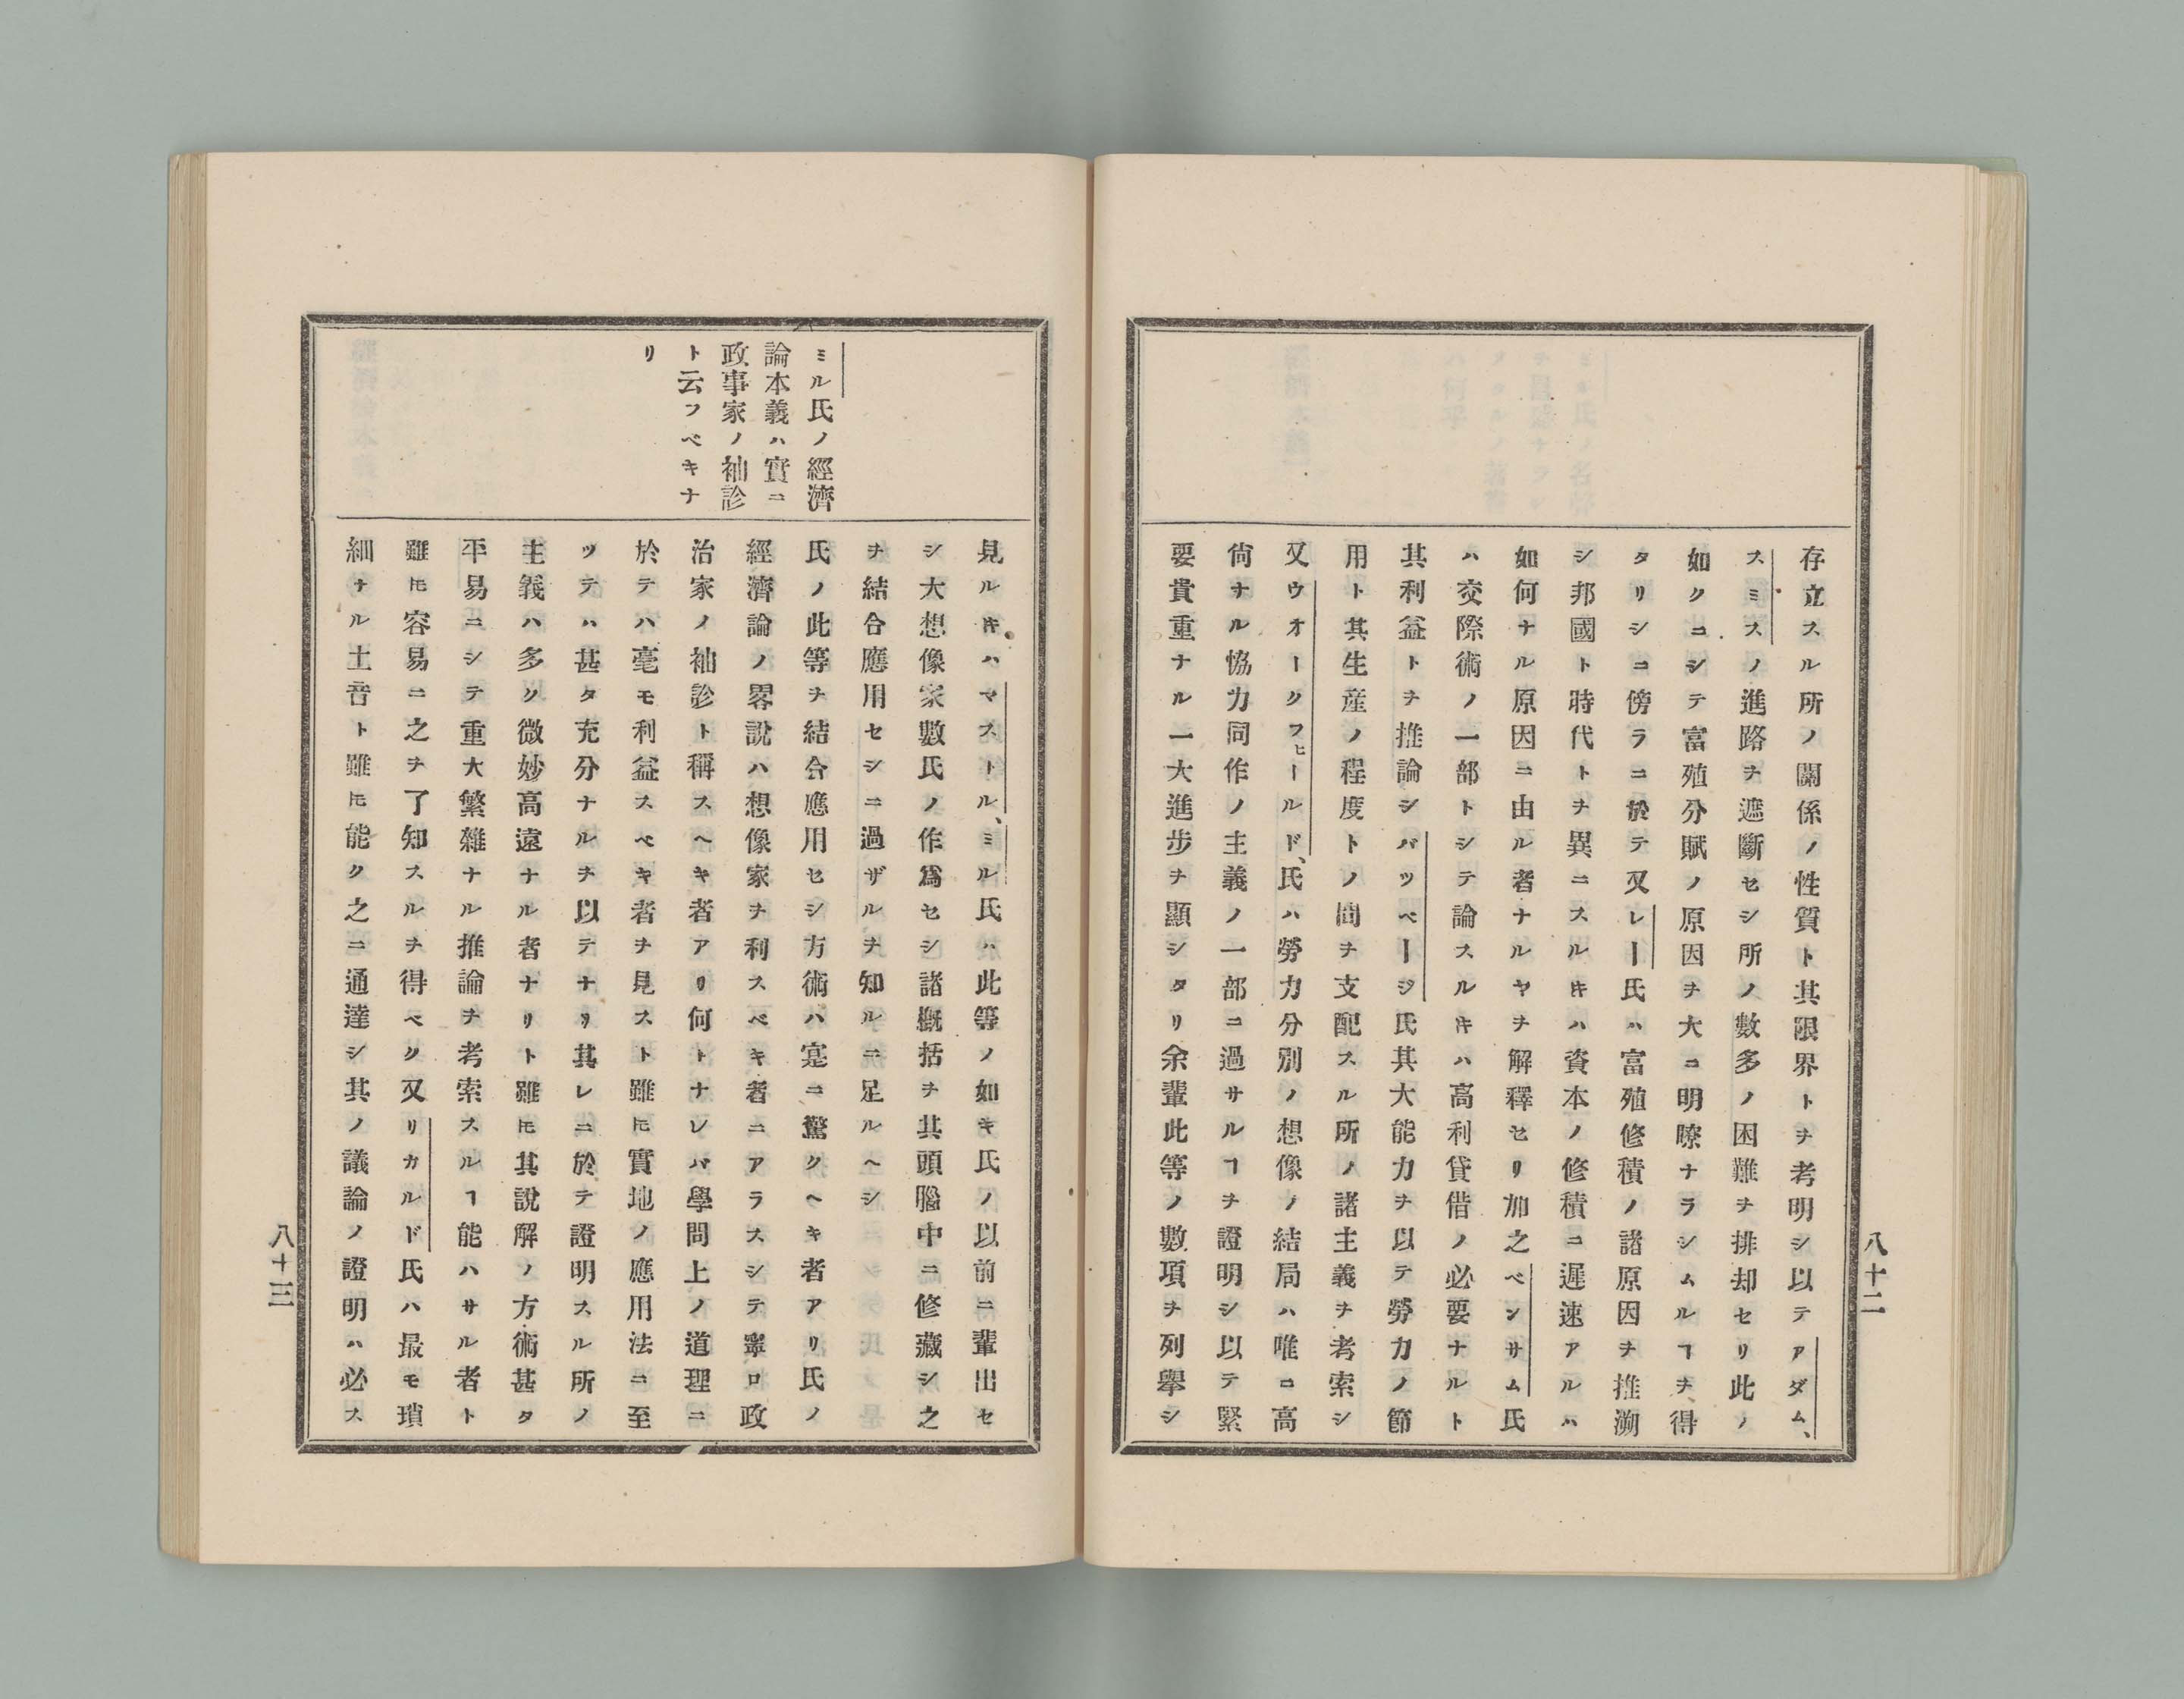 存立スル所ノ關係ノ性質ト其限界トヲ考明シ以テアダム、
スミスノ進路ヲ遮斷セシ所ノ數多ノ困難ヲ排却セリ此ノ
如クニシテ富殖分賦ノ原因ヲ大ニ明瞭ナラシムルヿヲ、得
タリシニ傍ラニ於テ又レー氏ハ富殖修積ノ諸原因ヲ推溯
シ邦國ト時代トヲ異ニスルキハ資本ノ修積ニ遲速アルハ
如何ナル原因ニ由ル者ナルヤヲ解釋セリ加之ベンサム氏
ハ交際術ノ一部トシテ論スルキハ高利貸借ノ必要ナルト
其利益トヲ推論シバツベージ氏其大能力ヲ以テ勞力ノ節
用ト其生産ノ程度トノ間ヲ支配スル所ノ諸主義ヲ考索シ
又ウオークフヒールド、氏ハ勞力分別ノ想像ノ結局ハ唯ニ高
尙ナル恊力同作ノ主義ノ一部ニ過サルヿヲ證明シ以テ緊
要貴重ナル一大進步ヲ顯シタリ余輩此等ノ數項ヲ列擧シ
八十二
ミル氏ノ經濟
論本義ハ實ニ
政事家ノ袖診
ト云フベキナ
リ
見ルキハマストル、ミル氏ハ此等ノ如キ氏ノ以前ニ輩出セ
シ大想像家數氏ノ作爲セシ諸概括ヲ其頭腦中ニ修藏シ之
ヲ結合應用セシニ過ザルヲ知ルニ足ルヘシ
氏ノ此等ヲ結合應用セシ方術ハ寔ニ驚クヘキ者アリ氏ノ
經濟論ノ畧說ハ想像家ヲ利スベキ者ニアラスシテ寧ロ政
治家ノ袖診ト稱スヘキ者アリ何トナレバ學問上ノ道理ニ
於テハ毫モ利益スベキ者ヲ見スト雖𪜈實地ノ應用法ニ至
ツテハ甚タ充分ナルヲ以テナリ其レニ於テ證明スル所ノ
主義ハ多ク微妙高遠ナル者ナリト雖𪜈其說解ノ方術甚タ
平易ニシテ重大繁雜ナル推論ヲ考索スルヿ能ハサル者ト
雖𪜈容易ニ之ヲ了知スルヲ得ベク又リカルド氏ハ最モ瑣
細ナル土音ト雖𪜈能ク之ニ通達シ其ノ議論ノ證明ハ必ス
八十三